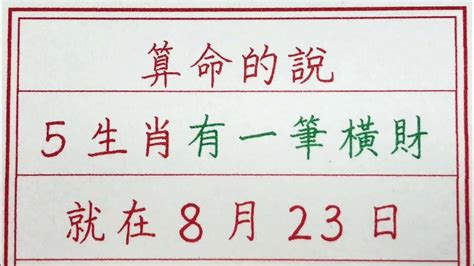 算命的說
5生肖有一筆橫財
就在8月23日